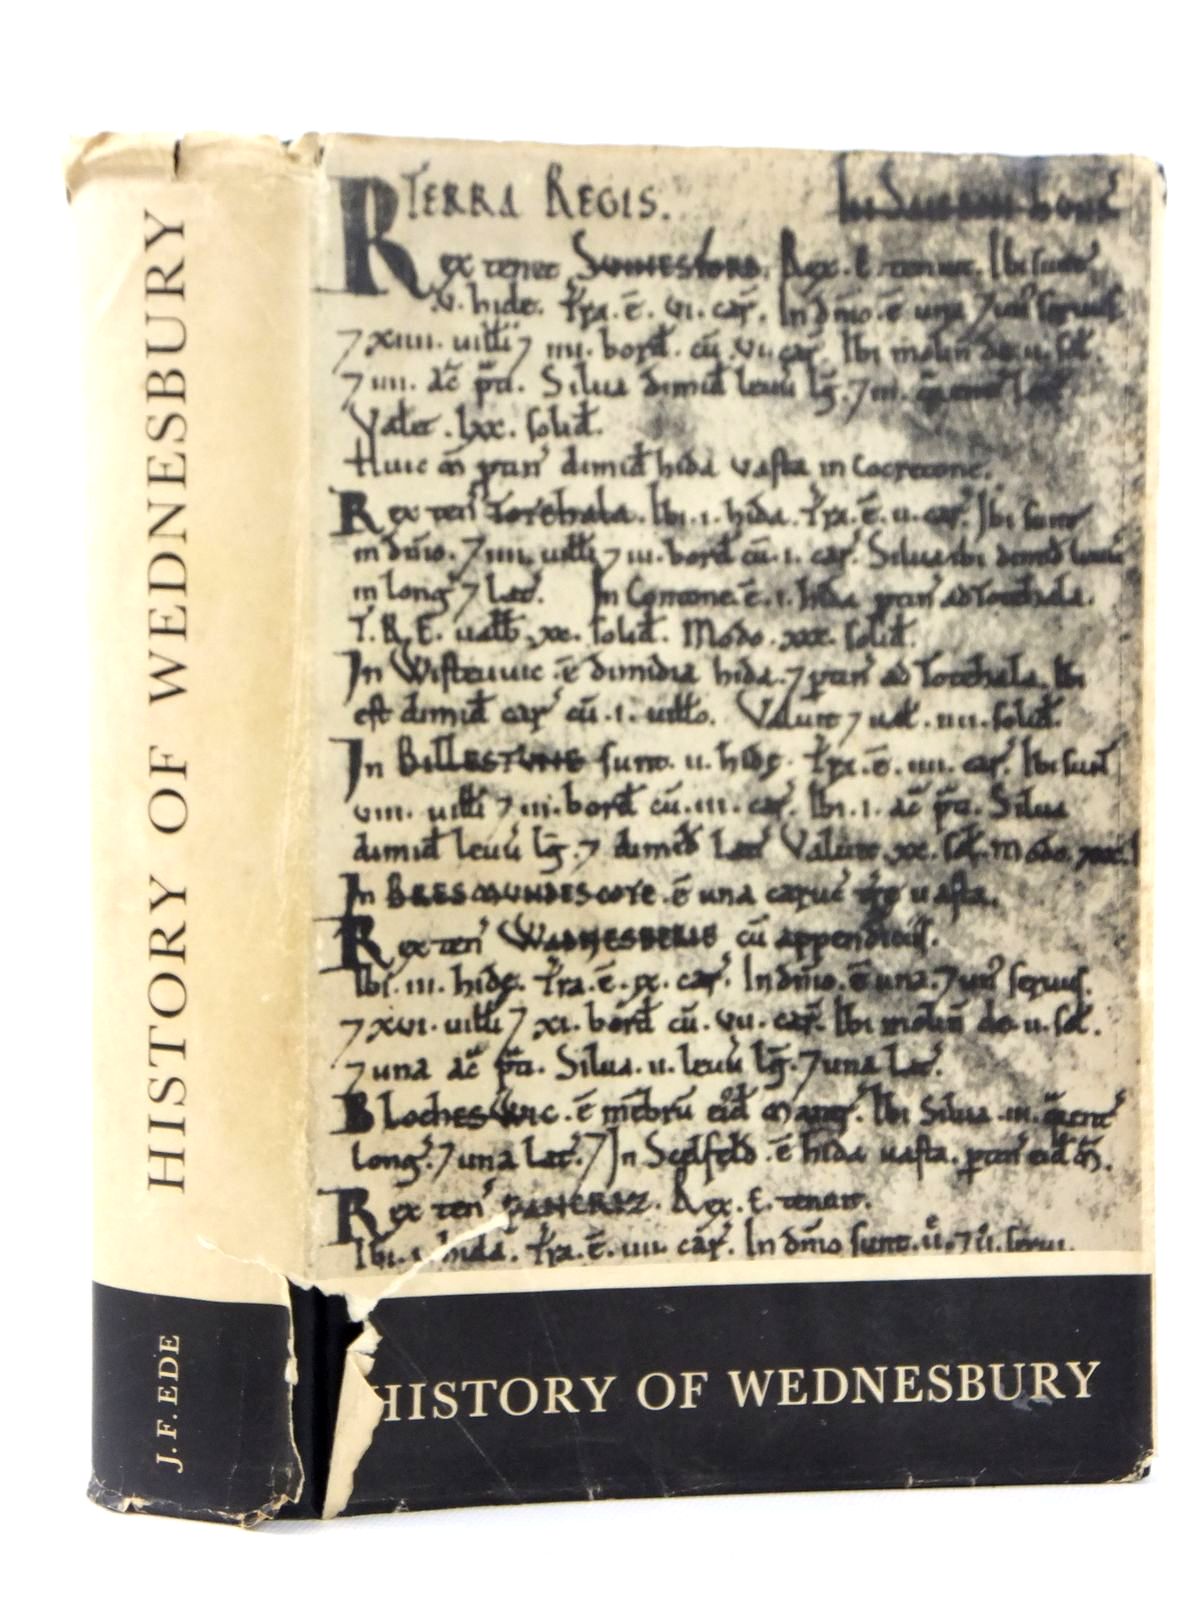 HISTORY OF WEDNESBURY
J. F. EDE
TERRA REGIS.
Rex tenet SUINESFORD. Rex. E. tenuit. Ibi sunt
.v. hidę. Tr̄a .ē. vi. car̃. In dn̄io .ē una ⁊ un' seruus
⁊ xiiii. uilłi ⁊ iiii. bord̃. cū .vi. car̃. Ibi molin̄ de .ii. sol̃.
⁊ iiii. ac̄ p̄ti. Silua dimid̃ leuū lḡ. ⁊ iii. q̃rent̃ lat̃
Valet .lxx. solid̃.
Huic m̄ ptin' dimid̃ hida vasta in Cocretone.
Rex ten' Totehala. Ibi .i. hida. Tr̄a .ē. ii. car̃. Ibi sunt
in dn̄io. ⁊ iiii. uilłi ⁊ iii. bord̃ cū .i. car̃. Silua ibi dimid̃ leuū
in long̃ ⁊ lat̃. In Contone .ē. i. hida ptin' ad Totehala.
T.R.E. ualb̃ .xx. solid̃. Modo .xxx. solid̃.
In Wisteuuic .ē dimidia hida. ⁊ ptin' ad Totehala. Ibi
est dimid̃ car̃ cū .i. uilło. Valuit ⁊ ual̃ .iiii. solid̃.
In BILLESTUNE sunt .ii. hidę. Tr̄a .ē. iiii. car̃. Ibi sunt
viii. uilłi ⁊ iii. bord̃ cū .iii. car̃. Ibi .i. ac̄ p̄ti. Silua
dimid̃ leuū lḡ. ⁊ dimid̃ lat̃ Valuit .xx. sol̃. Modo .xxx.
In BRESMUNDESCOTE .ē una caruc̃ tr̄ę uasta.
Rex ten' WADNESBERIE cū appendiciis.
Ibi .iii. hidę. Tr̄a .ē. ix. car̃. In dn̄io .ē una. ⁊ un' seruus.
⁊ xvi. uilłi ⁊ xi. bord̃ cū .vii. car̃. Ibi molin̄ de .ii. sol̃.
⁊ una ac̄ p̄ti. Silua .ii. leuū lḡ. ⁊ una lat̃.
BlochesWic .ē mēbrū eid̃ maner̃. Ibi Silua .iii. q̃rent̃
long̃. ⁊ una lat̃. ⁊ In Scelfeld .ē hida uasta. ptin' eid̃ m̄.
Rex ten' PANCRIZ. Rex. E. tenuit.
Ibi .i. hida. Tr̄a .ē. iiii. car̃. In dn̄io sunt .ii. ⁊ ii. serui.
HISTORY OF WEDNESBURY